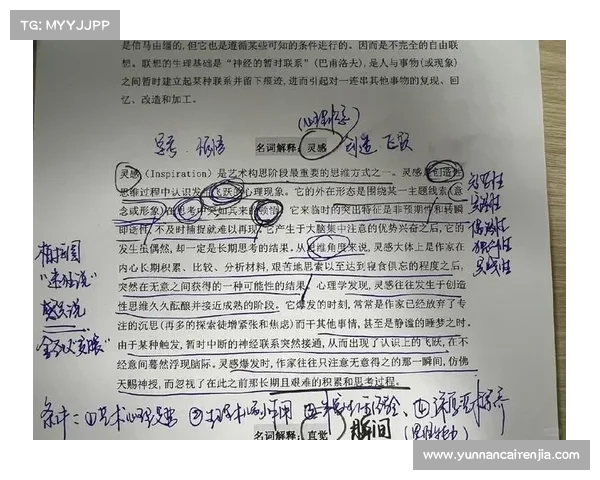 TG: MYYJJPP
是信马由缰的，但它也是遵循某些可知的条件进行的。因而是不完全的自由联
想。联想的生理基础是“神经的暂时联系”（巴甫洛夫），是人与事物（或现象）
之间暂时建立起某种联系并留下痕迹，进而引起对一连串其他事物的复现、回
忆、改造和加工。
名词解释：灵感 创造 飞跃
灵感（Inspiration）是艺术构思阶段最重要的思维方式之一。灵感是创造性
思维过程中认识发生飞跃的心理现象。它的外在形态是围绕某一主题线索（意
念或形象）在思考中突如其来的顿悟。它来临时的突出特征是非预期性和转瞬
即逝性，不及时捕捉就难以再现。它产生于大脑集中注意的优势兴奋之后，它的
发生虽偶然，却一定是长期思考的结果。从思维角度来说，灵感大体上是作家在
内心长期积累、比较、分析材料，艰苦地思索以至达到寝食俱忘的程度之后，
突然在无意之间获得的一种可能性的结果。心理学发现，灵感往往发生于创造
性思维久久酝酿并接近成熟的阶段。它爆发的时刻，常常是作家已经放弃了专
注的沉思（再多的探索徒增紧张和焦虑）而干其他事情，甚至是静谧的睡梦之时。
由于某种触发，暂时中断的神经联系突然接通，从而出现了认识上的飞跃，在不
经意间蓦然浮现脑际。灵感爆发时，作家往往只注意无意得之的那一瞬间，仿佛
天赐神授，而忽视了在此之前那长期且艰难的积累和思考过程。
柏拉图
“迷狂说”
条件：
名词解释：直觉 瞬间
www.yunnancairenjia.com